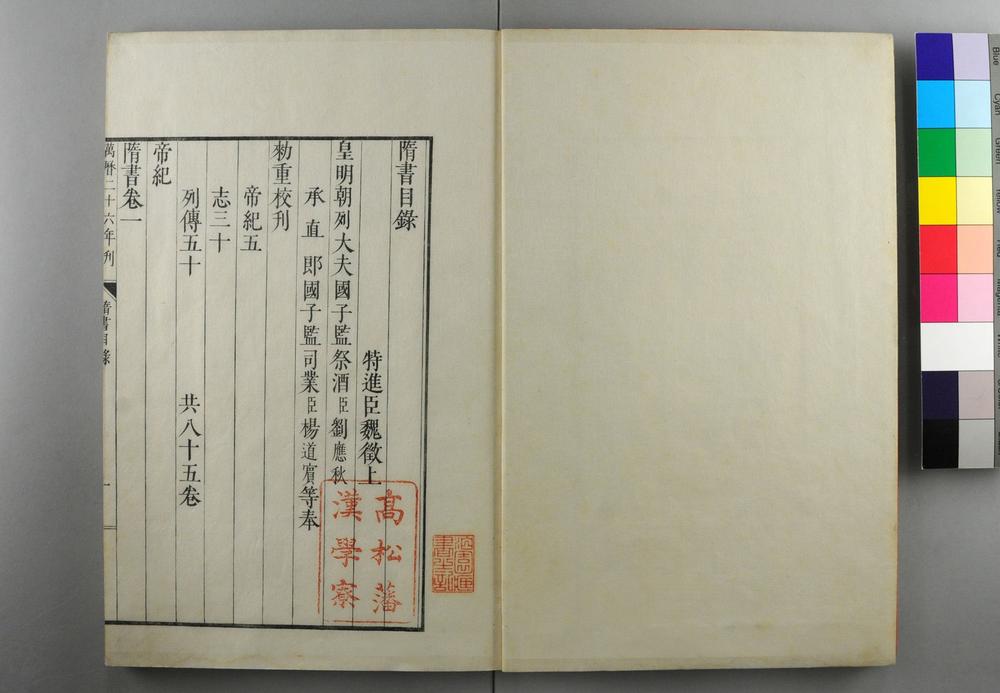 隋書目錄
特進臣魏徵上
皇明朝列大夫國子監祭酒臣劉應秋
承直郎國子監司業臣楊道賔等奉
勑重校刊
帝紀五
志三十
列傳五十 共八十五卷
帝紀
隋書卷一
萬曆二十六年刊 隋書目錄 一
高松藩
漢學寮
Blue
Cyan
Green